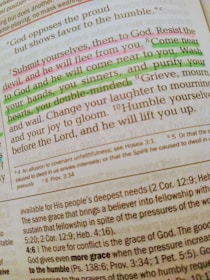 "God opposes the proud
but shows favor to the humble."
7 Submit yourselves, then, to God. Resist the
devil, and he will flee from you. 8 Come near
to God and he will come near to you. Wash
your hands, you sinners, and purify your
hearts, you double-minded. 9 Grieve, mourn
and wail. Change your laughter to mourning
and your joy to gloom. 10 Humble yourselves
before the Lord, and he will lift you up.
5 Or that the
6 Prov. 3:34
available for His people's deepest needs (2 Cor. 12:9; Heb.
The same grace that brings a believer into fellowship with
sustain that fellowship in spite of the pressures of the wo
5:20; 2 Cor. 12:9; Heb. 4:16).
4:6 The cure for conflict is the grace of God. The good
God gives even more grace when the pressure increase
to the humble (Ps. 138:6; Prov. 3:34; 1 Pet. 5:5). God
the prayers of those who humbly reque